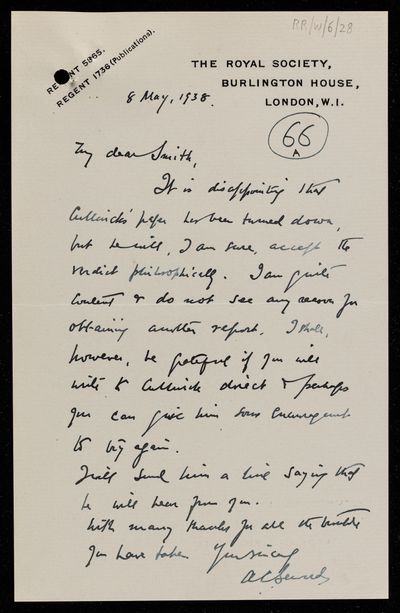 RR/W/6/28
REGENT 5965.
REGENT 1736 (Publications).
THE ROYAL SOCIETY,
BURLINGTON HOUSE,
LONDON, W.1.
8 May, 1938.
66
A
My dear Smith,
It is disappointing that
Cullwick's paper has been turned down,
but he will, I am sure, accept the
verdict philosophically. I am quite
content & do not see any reason for
obtaining another report. I shall,
however, be grateful if you will
write to Cullwick direct & perhaps
you can give him some encouragement
to try again.
I will send him a line saying that
he will hear from you.
With many thanks for all the trouble
you have taken Yours sincerely
A C Seward